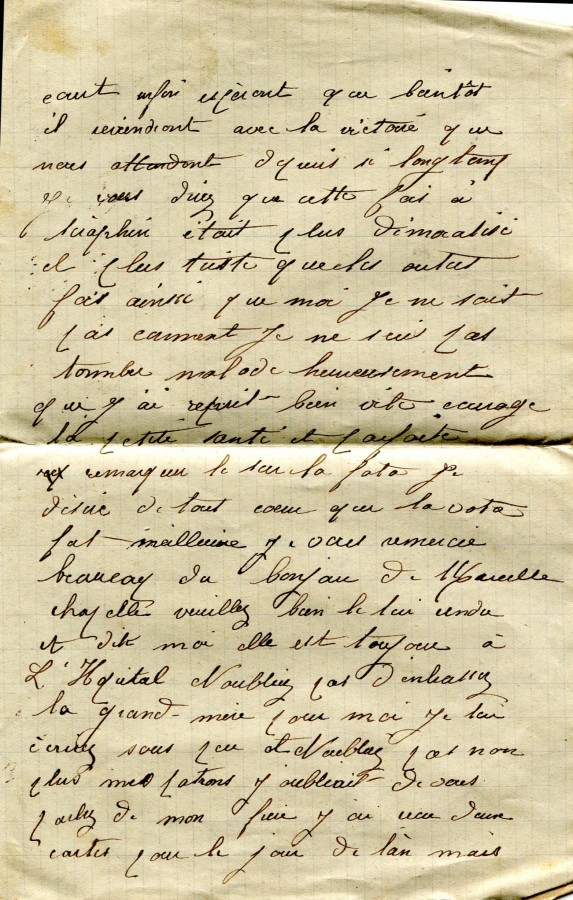 court enfin espèront que bientôt
il reviendront avec la victoire que
nous attendont depuis si longtemp
Je vous direz que cette fois à
Séraphin était plus démoralisé
et plus triste que les autres
fois ainsi que moi Je ne sait
pas comment Je ne suis pas
tombée malade heureusement
que j'ai reprit bien vite courage
la petite santé et parfaite
remarquer le sur la foto Je
désire de tout cœur que la votre
soit meilleure Je vous remercie
beaucoup du bonjour de Marcelle
Chapelle veuillez bien le lui rendre
et dite moi elle est toujour à
L'Hopital N'oubliez pas d'enbassez
la grand-mère pour moi Je lui
écrirez sous peu et N'oubliez pas non
plus mes patrons J'oubliait de vous
parlez de mon frère J'ai reçu deux
cartes pour le jour de l'an mais